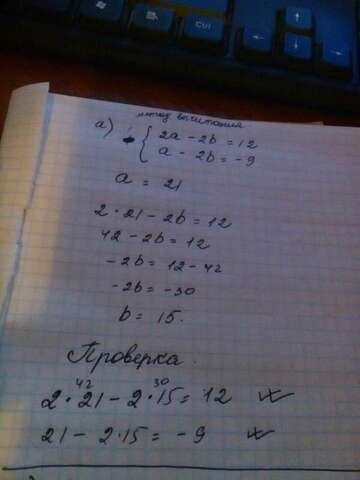 Ctrl
метод вычитания
а) { 2a - 2b = 12
a - 2b = -9
a = 21
2 · 21 - 2b = 12
42 - 2b = 12
-2b = 12 - 42
-2b = -30
b = 15.
Проверка.
42 30
2 · 21 - 2 · 15 = 12
21 - 2 · 15 = -9